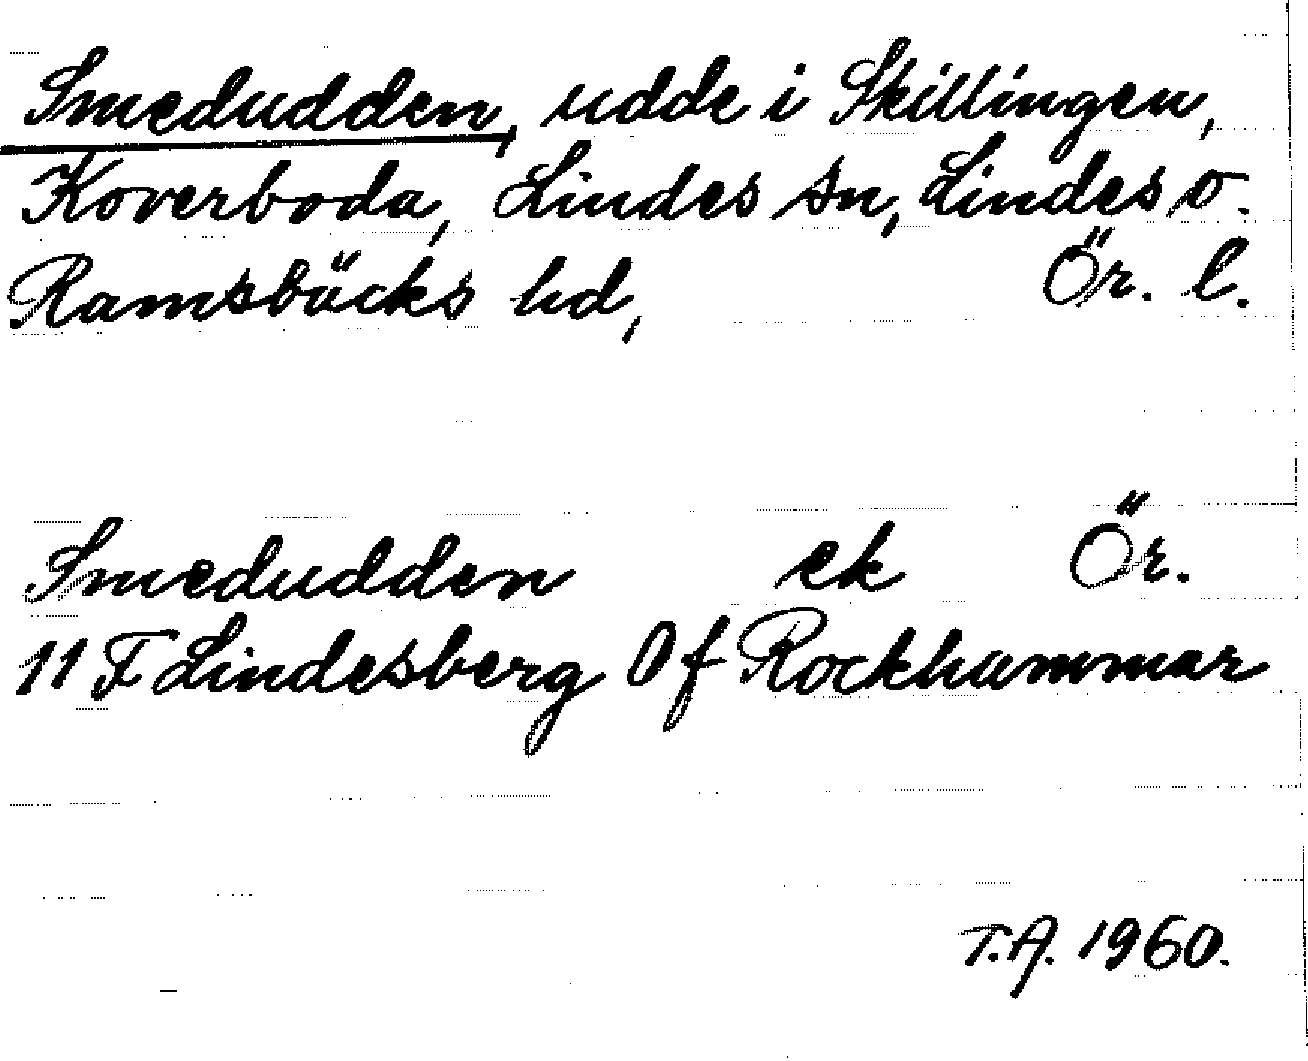 Smedudden, udde i Skillingen,
Koverboda, Lindes sn, Lindes o.
Ramsbäcks hd, Ör. l.
Smedudden ek Ör.
11 F Lindesberg 0 f Rockhammar
T.A. 1960.